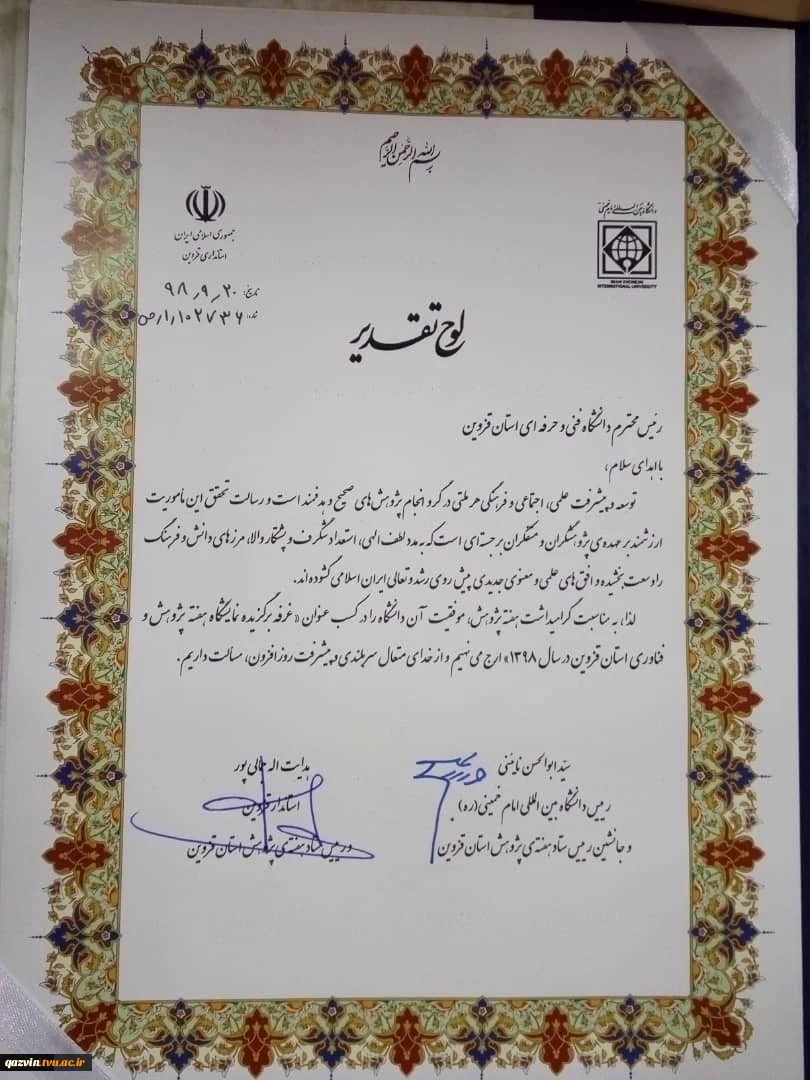 بسم الله الرحمن الرحیم
جمهوری اسلامی ایران
استانداری قزوین
تاریخ: ۹۸٫۹٫۲۰
۱٫۱۰۲۷۳۶٫ص
دانشگاه بین المللی امام خمینی
IMAM KHOMEINI
INTERNATIONAL UNIVERSITY
لوح تقدیر
رئیس محترم دانشگاه فنی و حرفه ای استان قزوین
با اهدای سلام،
توسعه و پیشرفت علمی، اجتماعی و فرهنگی هر ملتی در گرو انجام پژوهش های صحیح و هدفمند است و رسالت تحقق این مأموریت
ارزشمند بر عهده ی پژوهشگران و متفکران برجسته ای است که به مدد لطف الهی، استعداد شگرف و پشتکار والا، مرزهای دانش و فرهنگ
را وسعت بخشیده و افق های علمی و معنوی جدیدی پیش روی رشد و تعالی ایران اسلامی گشوده اند.
لذا، به مناسبت گرامیداشت هفته پژوهش، موفقیت آن دانشگاه را در کسب عنوان «غرفه برگزیده نمایشگاه هفته پژوهش و
فناوری استان قزوین در سال ۱۳۹۸» ارج می نهیم و از خدای متعال سربلندی و پیشرفت روزافزون، مسألت داریم.
سیّد ابوالحسن نائینی
رییس دانشگاه بین المللی امام خمینی (ره)
و جانشین رییس ستاد هفته ی پژوهش استان قزوین
هدایت اله جمالی پور
استاندار قزوین
و رییس ستاد هفته ی پژوهش استان قزوین
qazvin.tvu.ac.ir